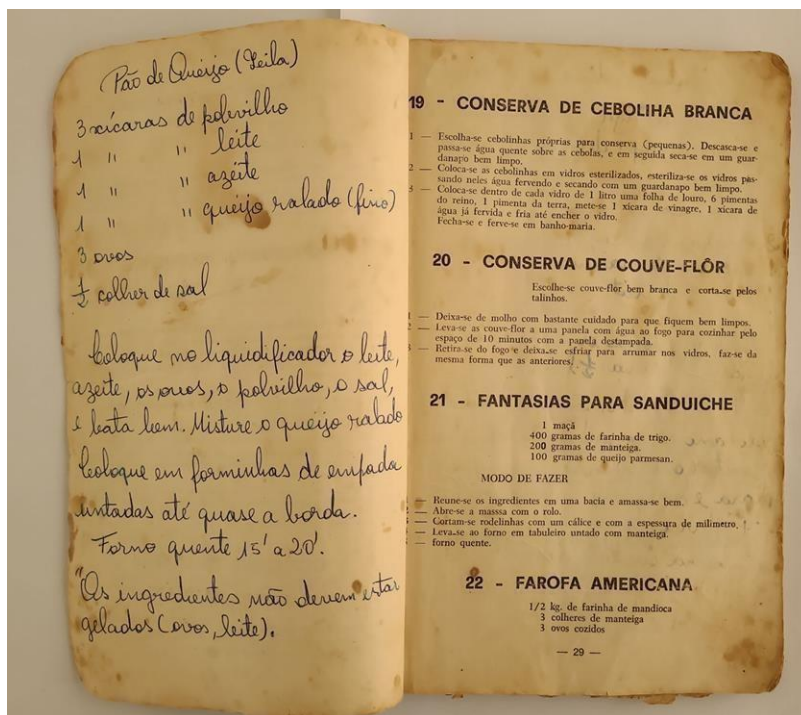 Pão de Queijo (Leila)
3 xícaras de polvilho
1 " " leite
1 " " azeite
1 " " queijo ralado (fino)
3 ovos
½ colher de sal
Coloque no liquidificador o leite,
azeite, os ovos, o polvilho, o sal,
e bata bem. Misture o queijo ralado
Coloque em forminhas de empada
untadas até quase a borda.
Forno quente 15' a 20'.
"Os ingredientes não devem estar
gelados (ovos, leite).
19 - CONSERVA DE CEBOLIHA BRANCA
1 — Escolha-se cebolinhas próprias para conserva (pequenas). Descasca-se e
passa-se água quente sobre as cebolas, e em seguida seca-se em um guar-
danapo bem limpo.
2 — Coloca-se as cebolinhas em vidros esterilizados, esteriliza-se os vidros pas-
sando neles água fervendo e secando com um guardanapo bem limpo.
3 — Coloca-se dentro de cada vidro de 1 litro uma folha de louro, 6 pimentas
do reino, 1 pimenta da terra, mete-se 1 xícara de vinagre, 1 xícara de
água já fervida e fria até encher o vidro.
Fecha-se e ferve-se em banho-maria.
20 - CONSERVA DE COUVE-FLÔR
Escolhe-se couve-flor bem branca e corta-se pelos
talinhos.
1 — Deixa-se de molho com bastante cuidado para que fiquem bem limpos.
2 — Leva-se as couve-flor a uma panela com água ao fogo para cozinhar pelo
espaço de 10 minutos com a panela destampada.
3 — Retira-se do fogo e deixa-se esfriar para arrumar nos vidros, faz-se da
mesma forma que as anteriores.
21 - FANTASIAS PARA SANDUICHE
1 maçã
400 gramas de farinha de trigo.
200 gramas de manteiga.
100 gramas de queijo parmesan.
MODO DE FAZER
— Reune-se os ingredientes em uma bacia e amassa-se bem.
— Abre-se a masssa com o rolo.
— Cortam-se rodelinhas com um cálice e com a espessura de milimetro.
— Leva-se ao forno em tabuleiro untado com manteiga.
— forno quente.
22 - FAROFA AMERICANA
1/2 kg. de farinha de mandioca
3 colheres de manteiga
3 ovos cozidos
— 29 —